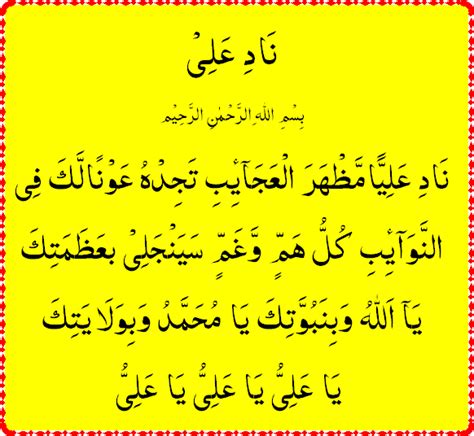 نَادِ عَلِیْ
بِسْمِ اللهِ الرَّحْمٰنِ الرَّحِيْمِ
نَادِ عَلِيًّا مَّظْهَرَ الْعَجَآئِبِ تَجِدْهُ عَوْنًا لَّكَ فِی
النَّوَآئِبِ كُلُّ هَمٍّ وَّغَمٍّ سَيَنْجَلِیْ بِعَظَمَتِكَ
يَآ اَللهُ وَبِنَبُوَّتِكَ يَا مُحَمَّدُ وَبِوِلَايَتِكَ
يَا عَلِیُّ يَا عَلِیُّ يَا عَلِیُّ